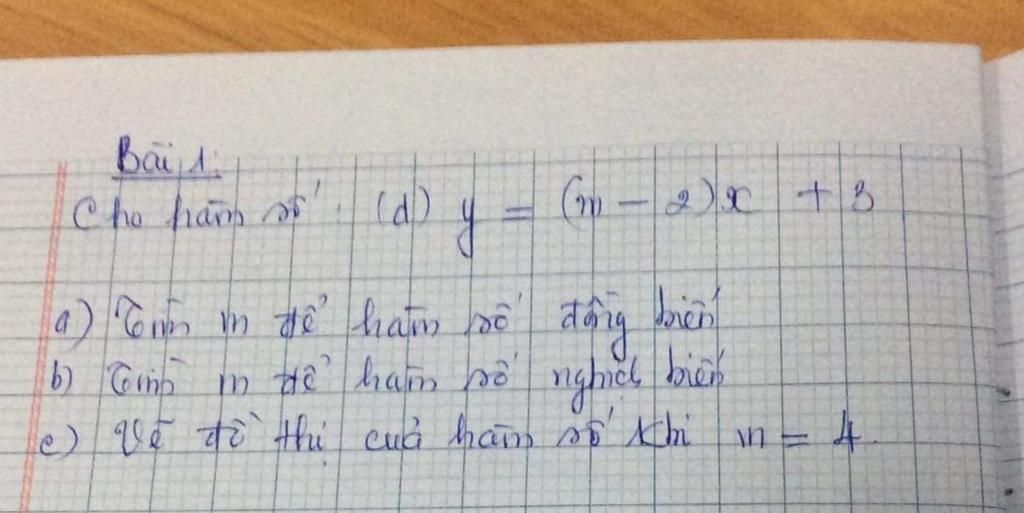 Bài 1:
Cho hàm số: (d) y = (m - 2)x + 3
a) Tìm m để hàm số đồng biến
b) Tìm m để hàm số nghịch biến
c) Vẽ đồ thị của hàm số khi m = 4.